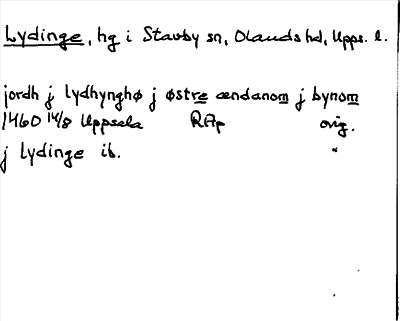 Lydinge, hg i Stavby sn, Olands hd, Upps. l.
jordh j lydhynghø j østre ændanom j bynom
1460 14/8 Uppsala RAp orig.
j lydinge ib. "